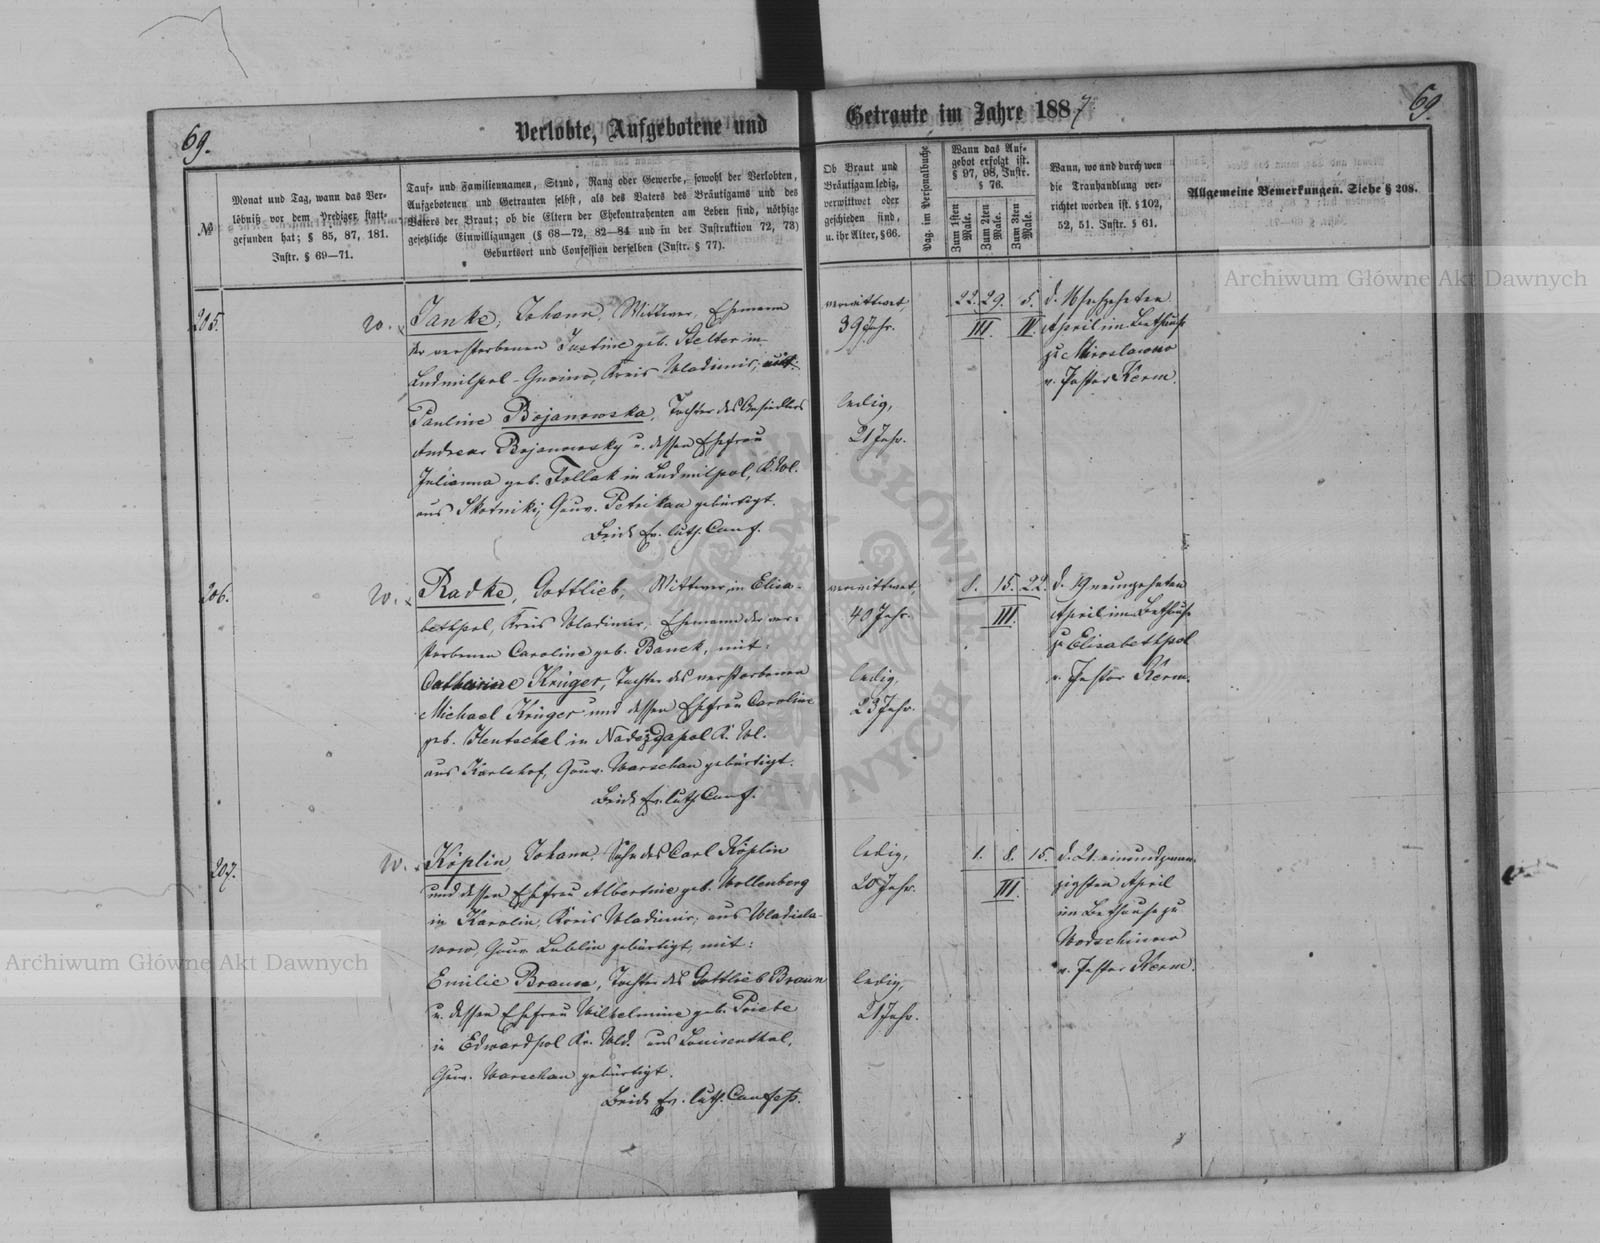 69.
Verlobte, Aufgebotene und
Getraute im Jahre 1887.
69.
№
Monat und Tag, wann das Ver-
löbniß vor dem Prediger statt-
gefunden hat; § 85, 87, 181.
Instr. § 69—71.
Tauf- und Familiennamen, Stand, Rang oder Gewerbe, sowohl der Verlobten,
Aufgebotenen und Getrauten selbst, als des Vaters des Bräutigams und des
Vaters der Braut; ob die Eltern der Ehekontrahenten am Leben sind, nöthige
gesetzliche Einwilligungen (§ 68—72, 82—84 und in der Instruktion 72, 73)
Geburtsort und Confession derselben (Instr. § 77).
Ob Braut und
Bräutigam ledig,
verwittwet oder
geschieden sind,
u. ihr Alter, § 66.
Pag. im Personalbuche
Wann das Auf-
gebot erfolgt ist.
§ 97, 98, Instr.
§ 76.
Zum 1sten Male.
Zum 2ten Male.
Zum 3ten Male.
Wann, wo und durch wen
die Trauhandlung ver-
richtet worden ist. § 102,
52, 51. Instr. § 61.
Allgemeine Bemerkungen. Siehe § 208.
205.
W.
Janke, Johann, Wittwer, Ehemann
der verstorbenen Justine geb. Stelter in
Ludmilpol-Gnoino, Kreis Wladimir, mit:
Pauline Bojanowska, Tochter des Ansiedlers
Andreas Bojanowsky u. dessen Ehefrau
Julianna geb. Follak in Ludmilpol, K. Wl.
aus Skotniki, Gouv. Petrikau gebürtigt.
Beide Ev. luth. Conf.
verwittwet,
39 Jahr.
ledig,
21 Jahr.
22. 29. 5.
III. IV.
April im Bethause
zu Miroslawno
v. Pastor Kerm.
206.
W.
Radke, Gottlieb, Wittwer, in Elisa-
bethpol, Kreis Wladimir, Ehemann der ver-
storbenen Caroline geb. Banek, mit:
Catharine Krüger, Tochter des verstorbenen
Michael Krüger und dessen Ehefrau Caroline
geb. Hentschel in Nadezdapol K. Wl.
aus Karlshof, Gouv. Warschau gebürtigt.
Beide Ev. luth. Conf.
verwittwet,
40 Jahr.
ledig,
23 Jahr.
8. 15. 22.
III.
d. 19 neunzehnten
April im Bethause
zu Elisabethpol
v. Pastor Kerm.
207.
W.
Köplin, Johann, Sohn des Carl Köplin
und dessen Ehefrau Albertine geb. Wollenberg
in Karolin, Kreis Wladimir, aus Wladisla-
wow Gouv. Lublin gebürtigt, mit:
Emilie Braun, Tochter des Gottlieb Braun
u. dessen Ehefrau Wilhelmine geb. Priebe
in Edwardpol Kr. Wld. aus Louisenthal,
Gouv. Warschau gebürtigt.
Beide Ev. luth. Confess.
ledig,
20 Jahr.
ledig,
21 Jahr.
1. 8. 15.
III.
d. 21. einundzwan-
zigsten April
im Bethause zu
v. Pastor Kerm.
Archiwum Główne Akt Dawnych
Archiwum Główne Akt Dawnych